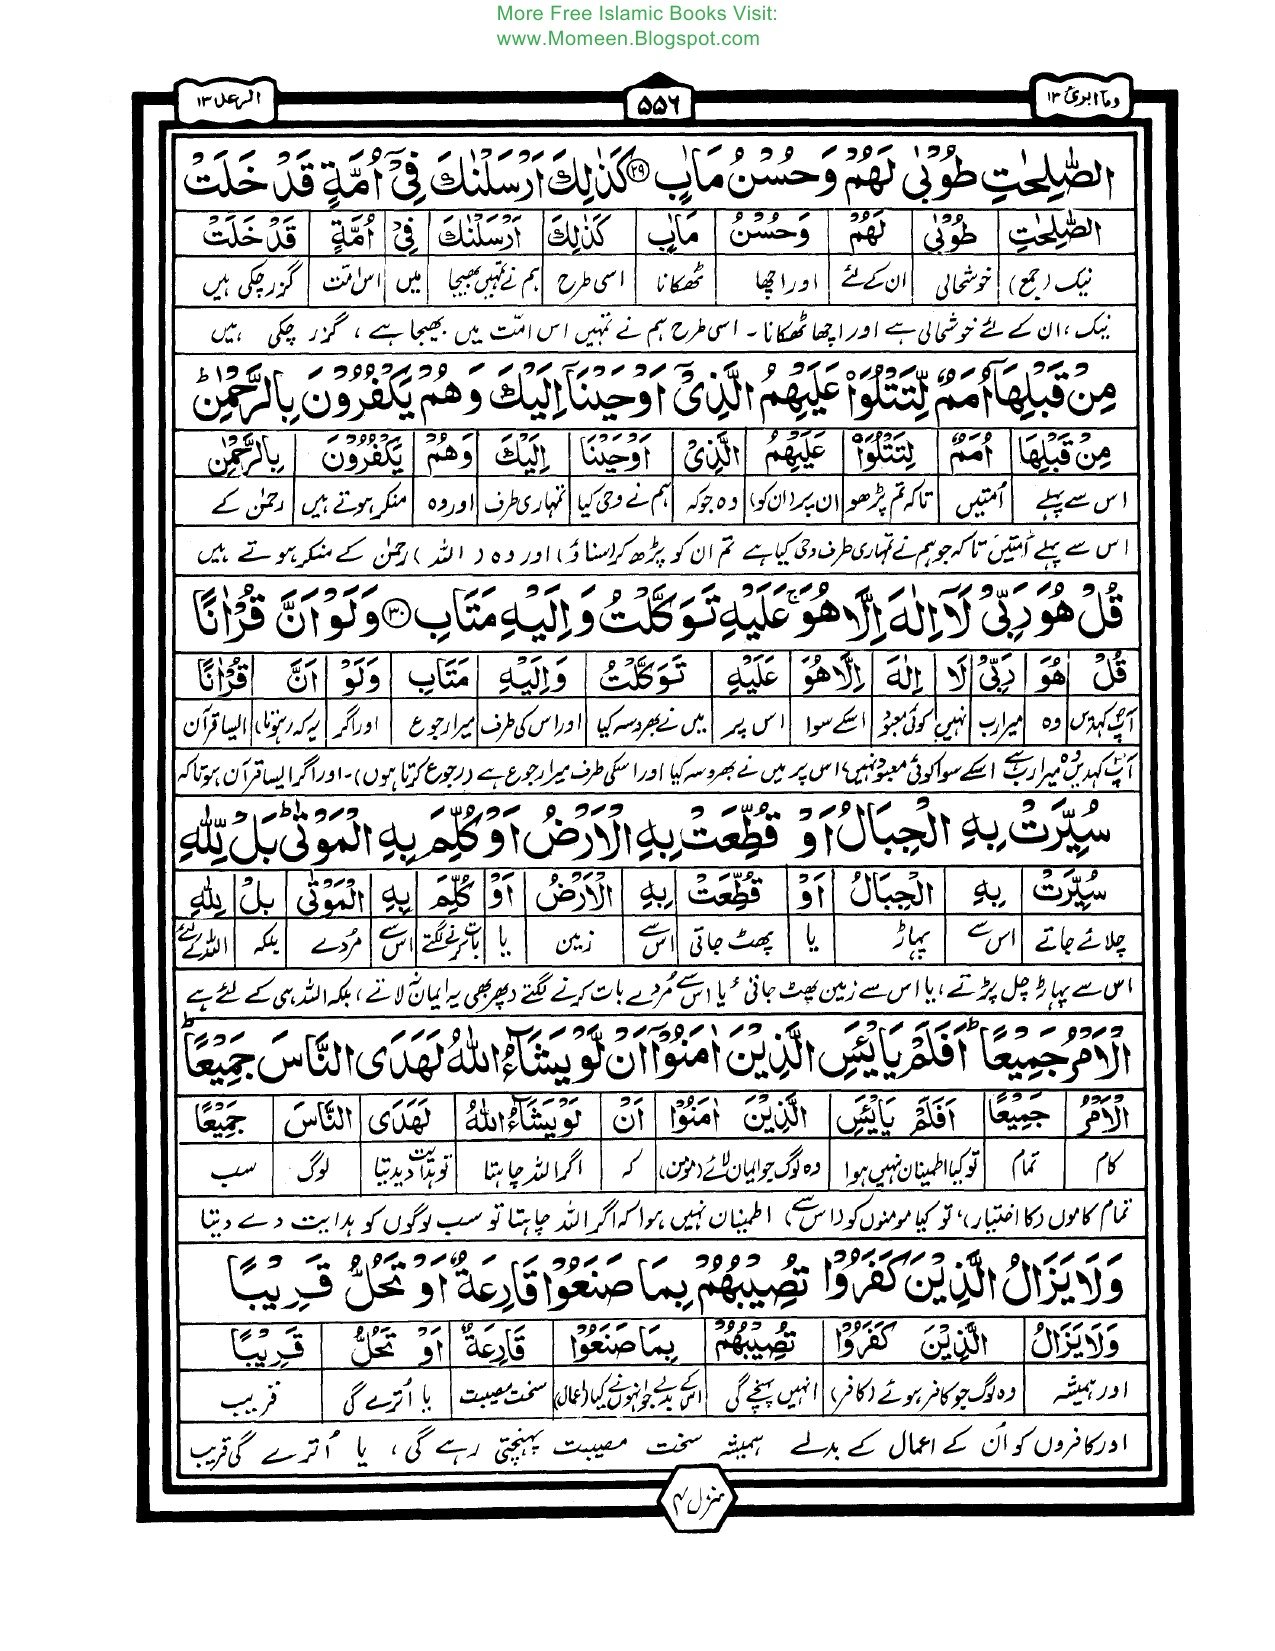 More Free Islamic Books Visit:
www.Momeen.Blogspot.com
وما ابرئ ۱۳
۵۵۶
الرعد ۱۳
الصّٰلِحٰتِ طُوْبٰى لَهُمْ وَحُسْنُ مَاٰبٍ ۲۹ كَذٰلِكَ اَرْسَلْنٰكَ فِیْۤ اُمَّةٍ قَدْ خَلَتْ
الصّٰلِحٰتِ طُوْبٰى لَهُمْ وَحُسْنُ مَاٰبٍ كَذٰلِكَ اَرْسَلْنٰكَ فِیْۤ اُمَّةٍ قَدْ خَلَتْ
نیک (جمع) خوشحالی ان کے لئے اور اچھا ٹھکانا اسی طرح ہم نے تمہیں بھیجا میں اس امت گزر چکی ہیں
نیک، ان کے لئے خوشحالی ہے اور اچھا ٹھکانا ۔ اسی طرح ہم نے تمہیں اس امّت میں بھیجا ہے ، گزر چکی ہیں
مِنْ قَبْلِهَاۤ اُمَمٌ لِّتَتْلُوَا۠ عَلَیْهِمُ الَّذِیْۤ اَوْحَیْنَاۤ اِلَیْكَ وَهُمْ یَكْفُرُوْنَ بِالرَّحْمٰنِ ؕ
مِنْ قَبْلِهَا اُمَمٌ لِتَتْلُوَا۠ عَلَیْهِمُ الَّذِیْ اَوْحَیْنَا اِلَیْكَ وَهُمْ یَكْفُرُوْنَ بِالرَّحْمٰنِ
اس سے پہلے اُمتیں تاکہ تم پڑھو ان پر (ان کو) وہ جو کہ ہم نے وحی کیا تمہاری طرف اور وہ منکر ہوتے ہیں رحمٰن کے
اس سے پہلے اُمتیں تاکہ جو ہم نے تمہاری طرف وحی کیا ہے تم ان کو پڑھ کر (سناؤ) اور وہ (اللہ) رحمٰن کے منکر ہوتے ہیں
قُلْ هُوَ رَبِّیْ لَاۤ اِلٰهَ اِلَّا هُوَ ۚ عَلَیْهِ تَوَكَّلْتُ وَاِلَیْهِ مَتَابِ ۳۰ وَلَوْ اَنَّ قُرْاٰنًا
قُلْ هُوَ رَبِّیْ لَا اِلٰهَ اِلَّا هُوَ عَلَیْهِ تَوَكَّلْتُ وَاِلَیْهِ مَتَابِ وَلَوْ اَنَّ قُرْاٰنًا
آپ کہدیں وہ میرا رب نہیں کوئی معبود اسکے سوا اس پر میں نے بھروسہ کیا اور اس کی طرف میرا رجوع اور اگر یہ کہ (ہوتا) ایسا قرآن
آپ کہدیں وہ میرا رب ہے اسکے سوا کوئی معبود نہیں، اس پر میں نے بھروسہ کیا اور اسکی طرف میرا رجوع ہے (رجوع کرتا ہوں)۔ اور اگر ایسا قرآن ہوتا کہ
سُیِّرَتْ بِهِ الْجِبَالُ اَوْ قُطِّعَتْ بِهِ الْاَرْضُ اَوْ كُلِّمَ بِهِ الْمَوْتٰى ؕ بَلْ لِّلّٰهِ
سُیِّرَتْ بِهِ الْجِبَالُ اَوْ قُطِّعَتْ بِهِ الْاَرْضُ اَوْ كُلِّمَ بِهِ الْمَوْتٰى بَلْ لِلّٰهِ
چلائے جاتے اس سے پہاڑ یا پھٹ جاتی اس سے زمین یا بات کرنے لگتے اس سے مُردے بلکہ اللہ کے لئے
اس سے پہاڑ چل پڑتے ، یا اس سے زمین پھٹ جاتی ، یا اس سے مُردے بات کرنے لگتے (پھر بھی یہ ایمان نہ لاتے)، بلکہ اللہ ہی کے لئے ہے
الْاَمْرُ جَمِیْعًا ؕ اَفَلَمْ یَایْـَٔسِ الَّذِیْنَ اٰمَنُوْۤا اَنْ لَّوْ یَشَآءُ اللّٰهُ لَهَدَی النَّاسَ جَمِیْعًا ؕ
الْاَمْرُ جَمِیْعًا اَفَلَمْ یَایْـَٔسِ الَّذِیْنَ اٰمَنُوْا اَنْ لَوْ یَشَآءُ اللّٰهُ لَهَدَی النَّاسَ جَمِیْعًا
کام تمام تو کیا اطمینان نہیں ہوا وہ لوگ جو ایمان لائے (مومن) کہ اگر اللہ چاہتا تو ہدایت دیدیتا لوگ سب
تمام کاموں (کا اختیار)، تو کیا مومنوں کو (اس سے) اطمینان نہیں ہوا کہ اگر اللہ چاہتا تو سب لوگوں کو ہدایت دے دیتا
وَلَا یَزَالُ الَّذِیْنَ كَفَرُوْا تُصِیْبُهُمْ بِمَا صَنَعُوْا قَارِعَةٌ اَوْ تَحُلُّ قَرِیْبًا
وَلَا یَزَالُ الَّذِیْنَ كَفَرُوْا تُصِیْبُهُمْ بِمَا صَنَعُوْا قَارِعَةٌ اَوْ تَحُلُّ قَرِیْبًا
اور ہمیشہ وہ لوگ جو کافر ہوئے (کافر) انہیں پہنچے گی اس کے بدلے جو انہوں نے کیا (اعمال) سخت مصیبت یا اُترے گی قریب
اور کافروں کو اُن کے اعمال کے بدلے ہمیشہ سخت مصیبت پہنچتی رہے گی ، یا اُترے گی قریب
منزل ۳